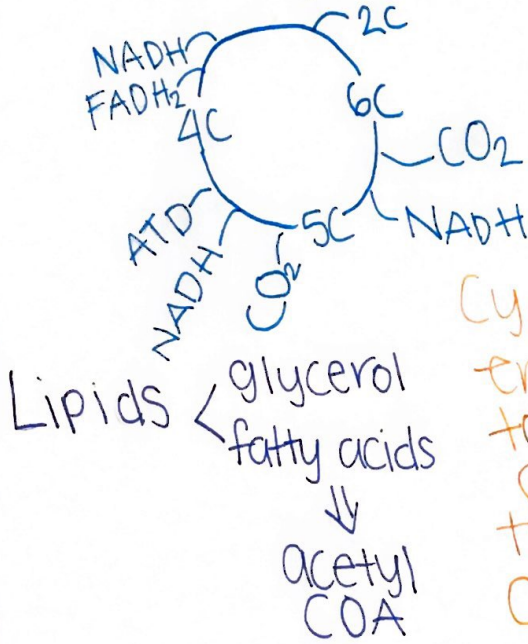 2C
NADH
FADH₂
6C
4C
CO₂
ATD
5C
NADH
NADH
CO₂
Lipids
glycerol
fatty acids
acetyl
COA
Cy